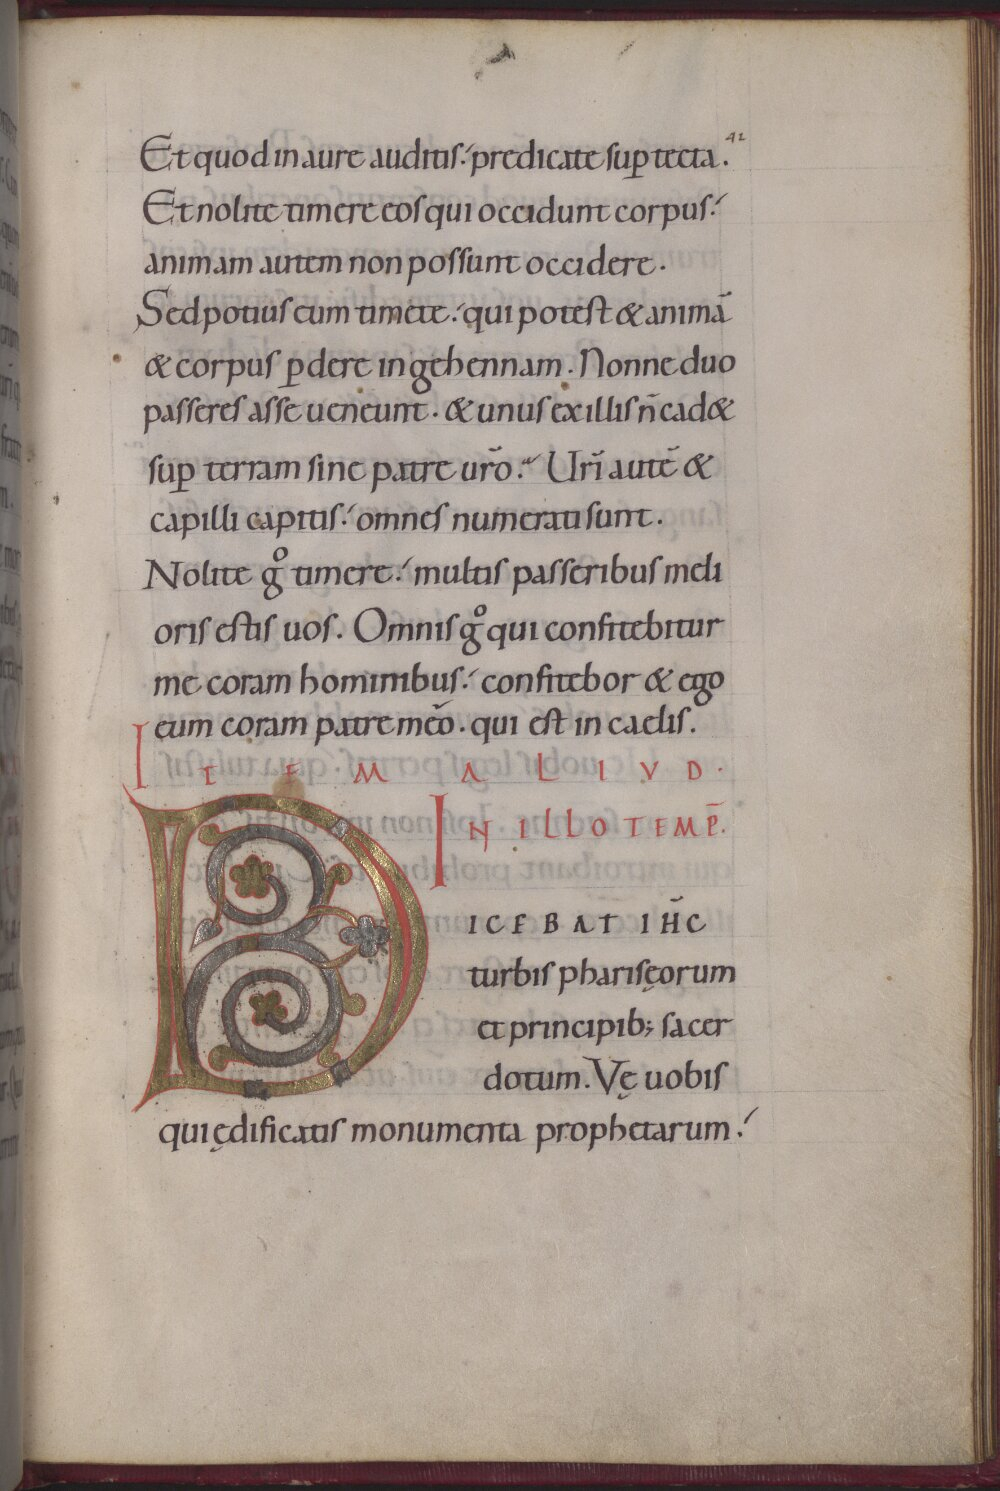 Et quod in aure auditis: predicate sup tecta.
41
Et nolite timere eos qui occidunt corpus:
animam autem non possunt occidere.
Sed potius eum timete: qui potest & animā
& corpus pdere in gehennam. Nonne duo
passeres asse ueneunt. & unus ex illis n̄ cad&
sup terram sine patre uro. Uri autē &
capilli capitis: omnes numerati sunt.
Nolite go timere: multis passeribus meli
oris estis uos. Omnis go qui confitebitur
me coram hominibus: confitebor & ego
eum coram patre meo. qui est in caelis.
ITEM ALIVD.
IN ILLO TEMP̄.
DICEBAT IH̄C
turbis pharisęorum
et principib; sacer
dotum. Vę uobis
qui ędificatis monumenta prophetarum: